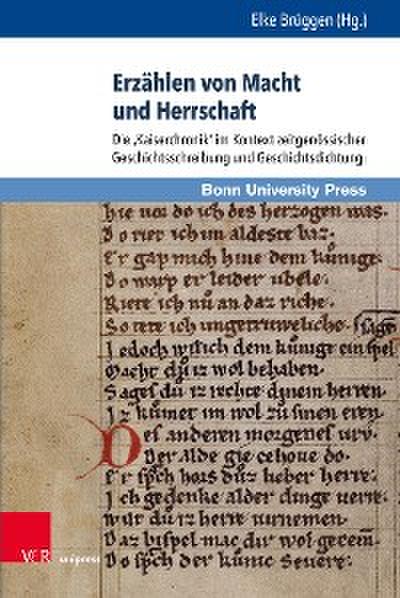 Elke Brüggen (Hg.)
Erzählen von Macht
und Herrschaft
Die ‚Kaiserchronik‘ im Kontext zeitgenössischer
Geschichtsschreibung und Geschichtsdichtung
Bonn University Press
hie vor do ich des herzogen was.
Do rier ich im aldeste baz.
Er gap mich hine dem kunige.
Do warp er leider ubele.
Riete ich nu an daz riche.
So tete ich ungetruweliche
sage
Jedoch wil ich dem kunige ein spel
Macht du iz wol behaben.
Sages du iz rechte dinem herren.
Iz kumet im wol zu sinen eren.
Des anderen morgenes vrv.
Der alde gie
Er spch hors du lieber herre.
Ich gedenke alder dinge verre.
wur du iz herre vernemen.
Daz bispel mac dir wol
Do spch der kunic Severe.
V&R
unipress